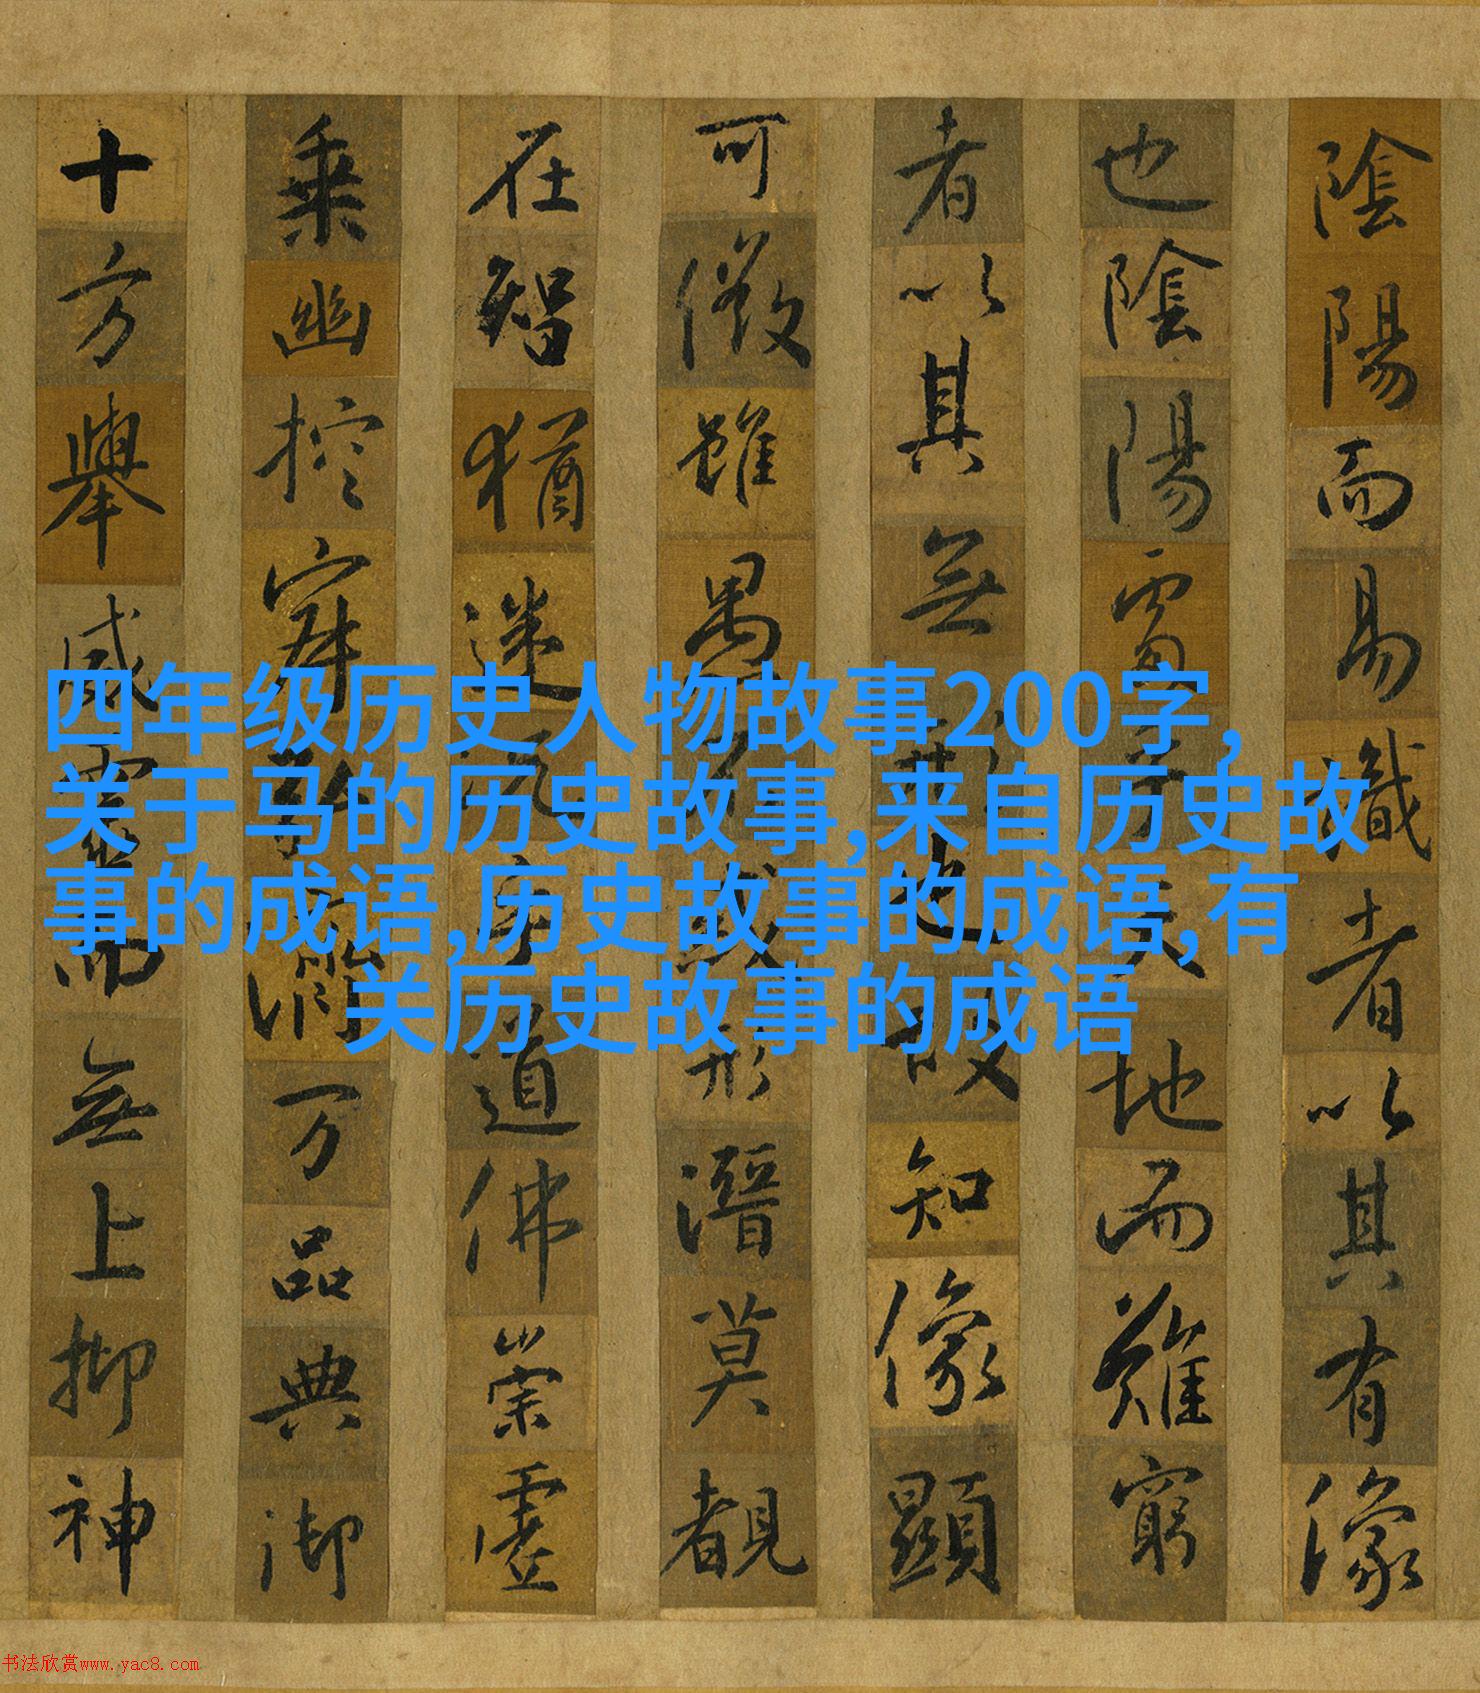 陰陽而易識者以其有像
也陰陽處乎天地而難窮
者以其無形也故知像顯
可徵雖愚不惑形潛莫覩
在智猶迷況乎道佛崇虛
乗幽控寂弘濟万品典御
十方舉威靈而無上抑神
四年级历史人物故事200字,
关于马的历史故事,来自历史故
事的成语,历史故事的成语,有
关历史故事的成语
书法欣赏www.yac8.com